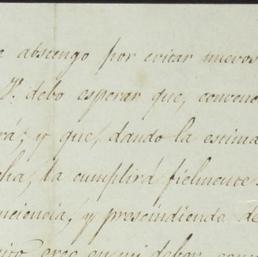 abstengo por evitar nuevos
V. debo esperar que, conven
rá; y que, dando la estima
cha, la cumplirá fielmente
nciencia, y prescindiendo de
creo en mi deber